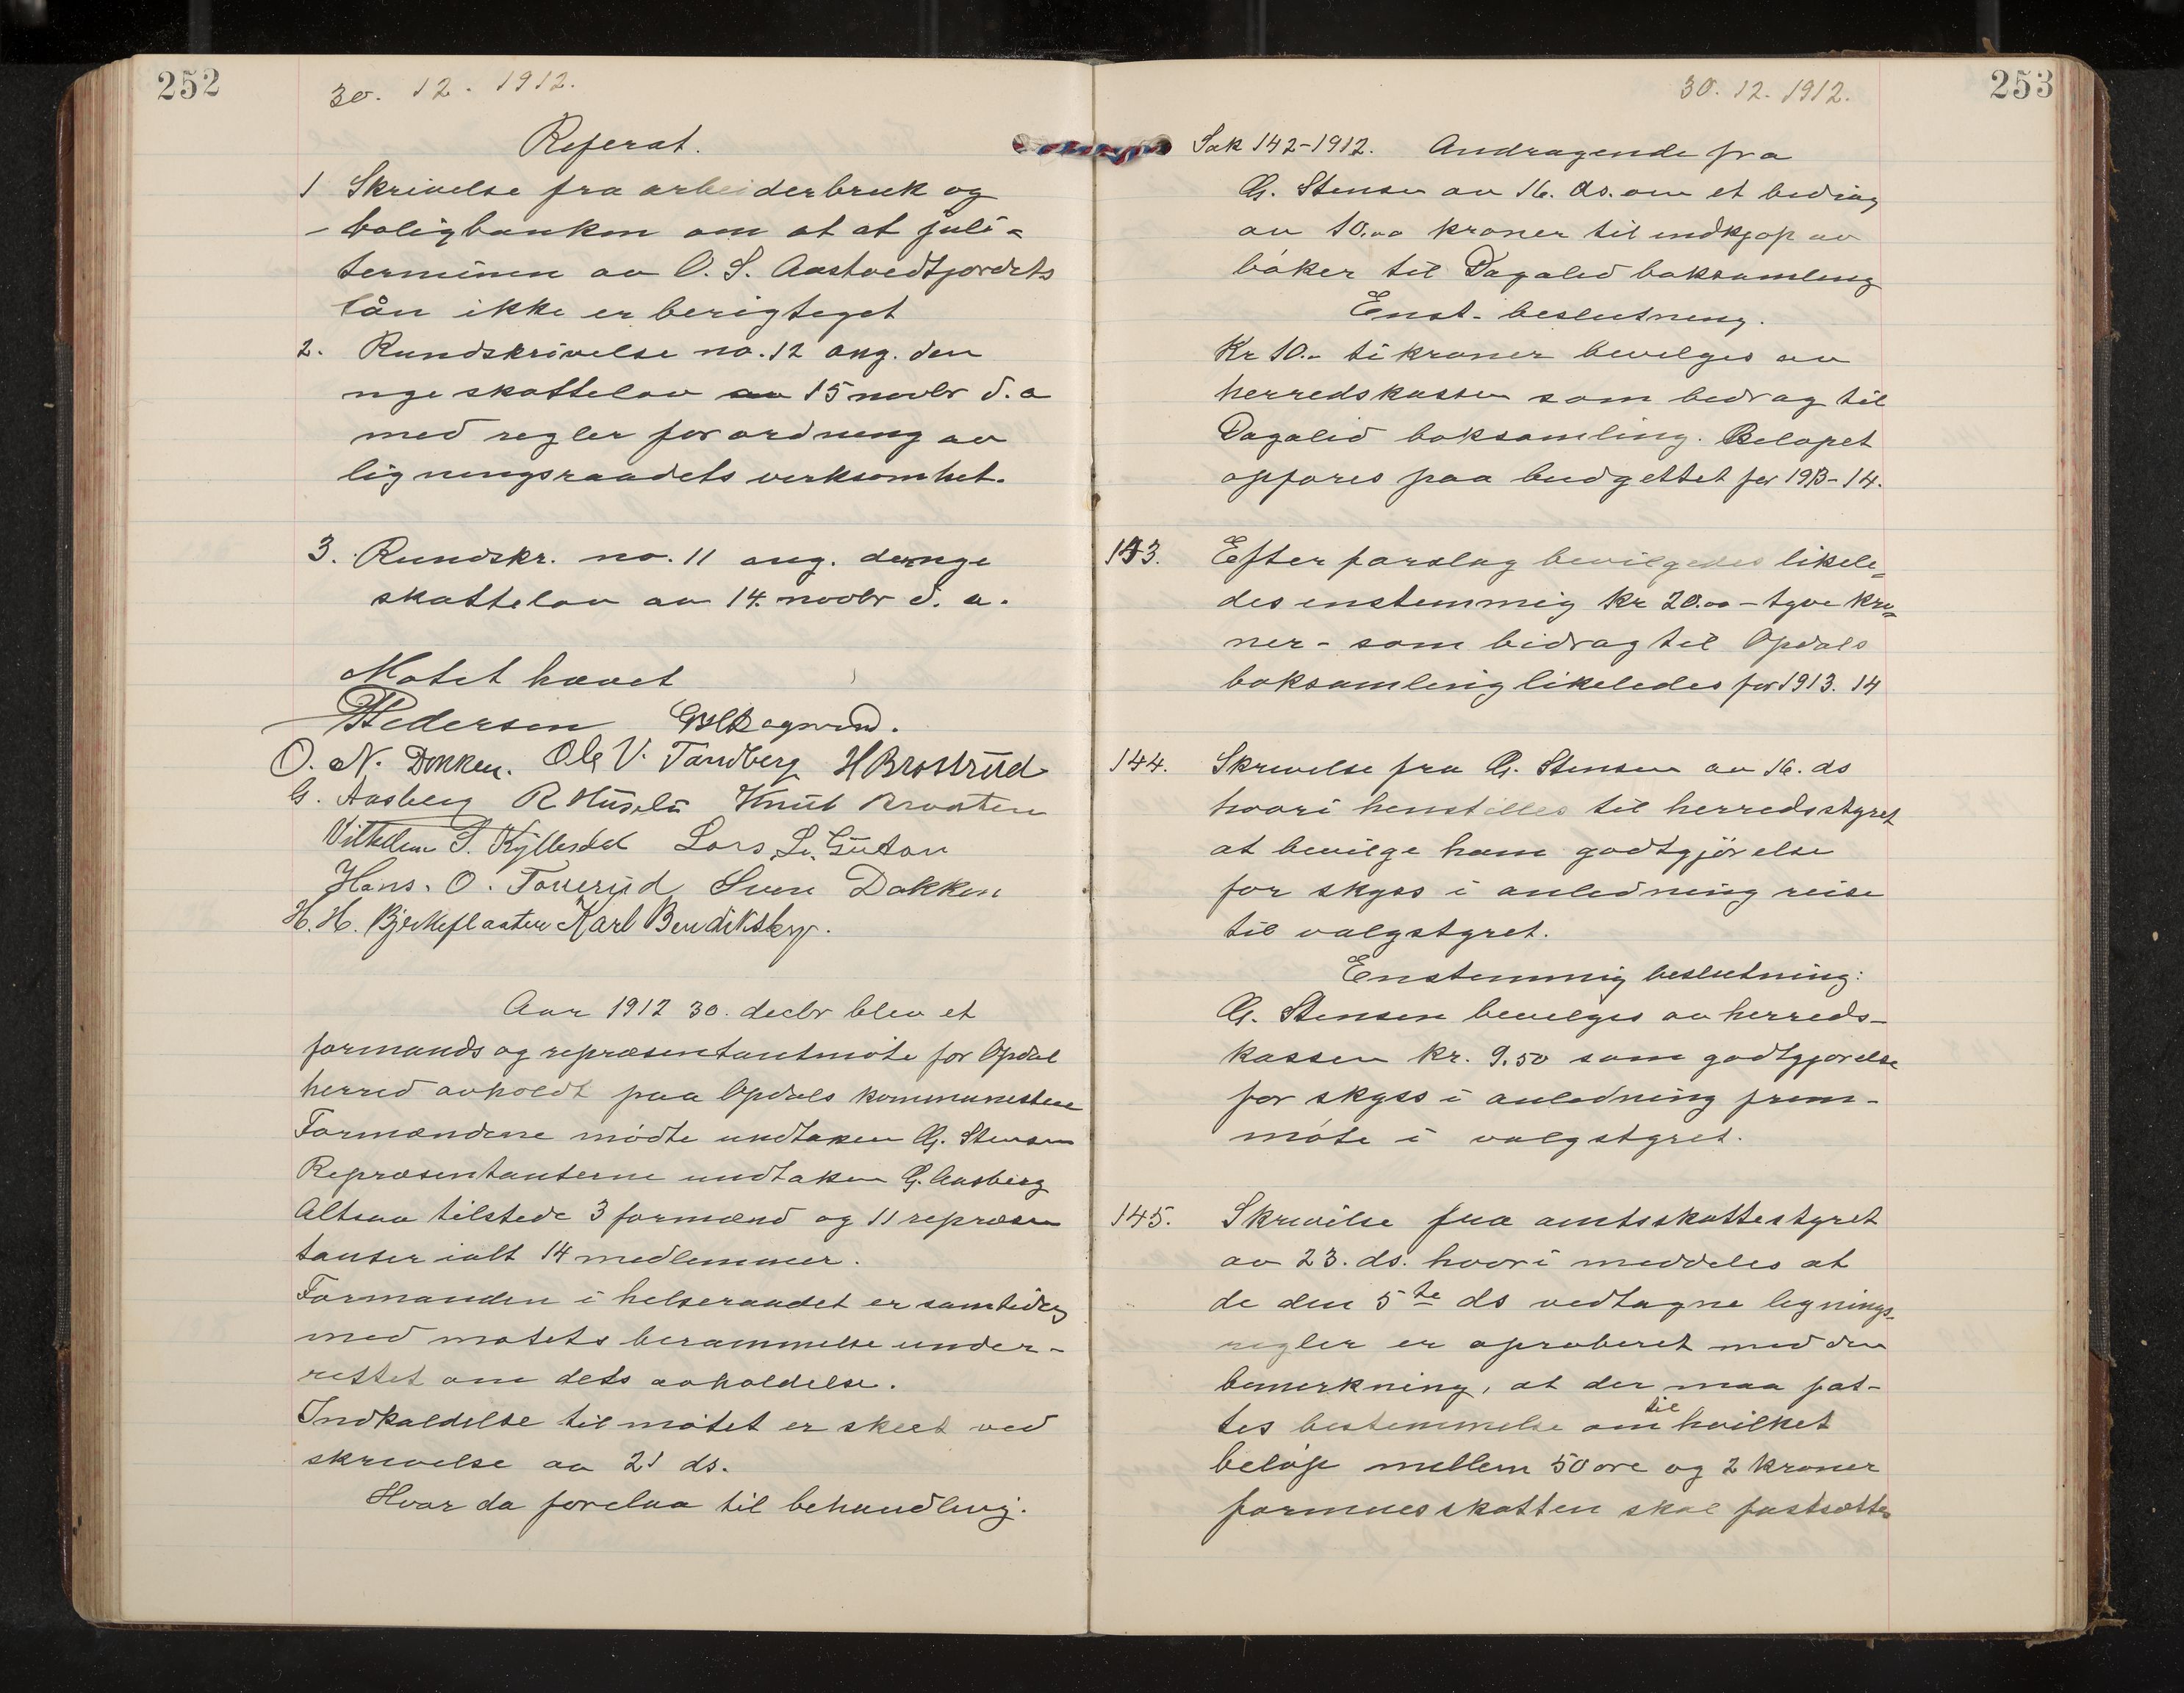 252
30. 12. 1912.
Referat.
1 Skrivelse fra arbeiderbruk og
- boligbanken om at at juli-
terminen av O. S. Aastvedtjordets
lån ikke er berigtiget
2. Rundskrivelse no. 12 ang. den
nye skattelov av 15 novbr d. a
med regler for ordning av
ligningsraadets verksomhet.
3. Rundskr. no. 11 ang. den nye
skattelov av 14. novbr d. a.
Møtet hævet
Pedersen
O. N. Dokken. Ole V. Tandberg H Brostrud
G. Aasberg R Knut Braaten
Vilhelm S. Lars L.
Hans. O. Sven Dokken
H. H. Bjerkeflaaten Karl Bendiksby.
Aar 1912 30. decbr blev et
formands og repræsentantmøte for Opdal
herred avholdt paa Opdals kommunestue
Formændene mødte undtaken G. Stensen
Repræsentanterne undtaken G. Aasberg
Altsaa tilstede 3 formænd og 11 repræsen
tanter ialt 14 medlemmer.
Formanden i helseraadet er samtidig
med møtets berammelse under-
rettet om dets avholdelse.
Indkaldelse til møtet er skeet ved
skrivelse av 21 ds.
Hvor da forelaa til behandling.
253
30. 12. 1912.
Sak 142-1912. Andragende fra
G. Stensen av 16. ds. om et bedrag
av 10.00 kroner til indkjøp av
bøker til Dagalid boksamling
Enst. beslutning.
Kr 10.- ti kroner bevilges av
herredskassen som bedrag til
Dagalid boksamling. Beløpet
opføres paa budgettet for 1913-14.
143. Efter forslag bevilgedes likele-
des enstemmig kr 20.00 - tyve kro-
ner - som bidrag til Opdals
boksamling likeledes for 1913. 14
144. Skrivelse fra G. Stensen av 16. ds
hvori henstilles til herredsstyret
at bevilge ham godtgjørelse
for skyss i anledning reise
til valgstyret.
Enstemmig beslutning:
G. Stensen bevilges av herreds-
kassen kr. 9.50 som godtgjørelse
for skyss i anledning frem-
møte i valgstyret.
145. Skrivelse fra amtsskattestyret
av 23. ds. hvori meddeles at
de den 5te ds vedtagne lignings-
regler er aproberet med den
bemerkning, at der maa fat-
tes bestemmelse om til hvilket
beløp mellem 50 øre og 2 kroner
formuesskatten skal fastsættes